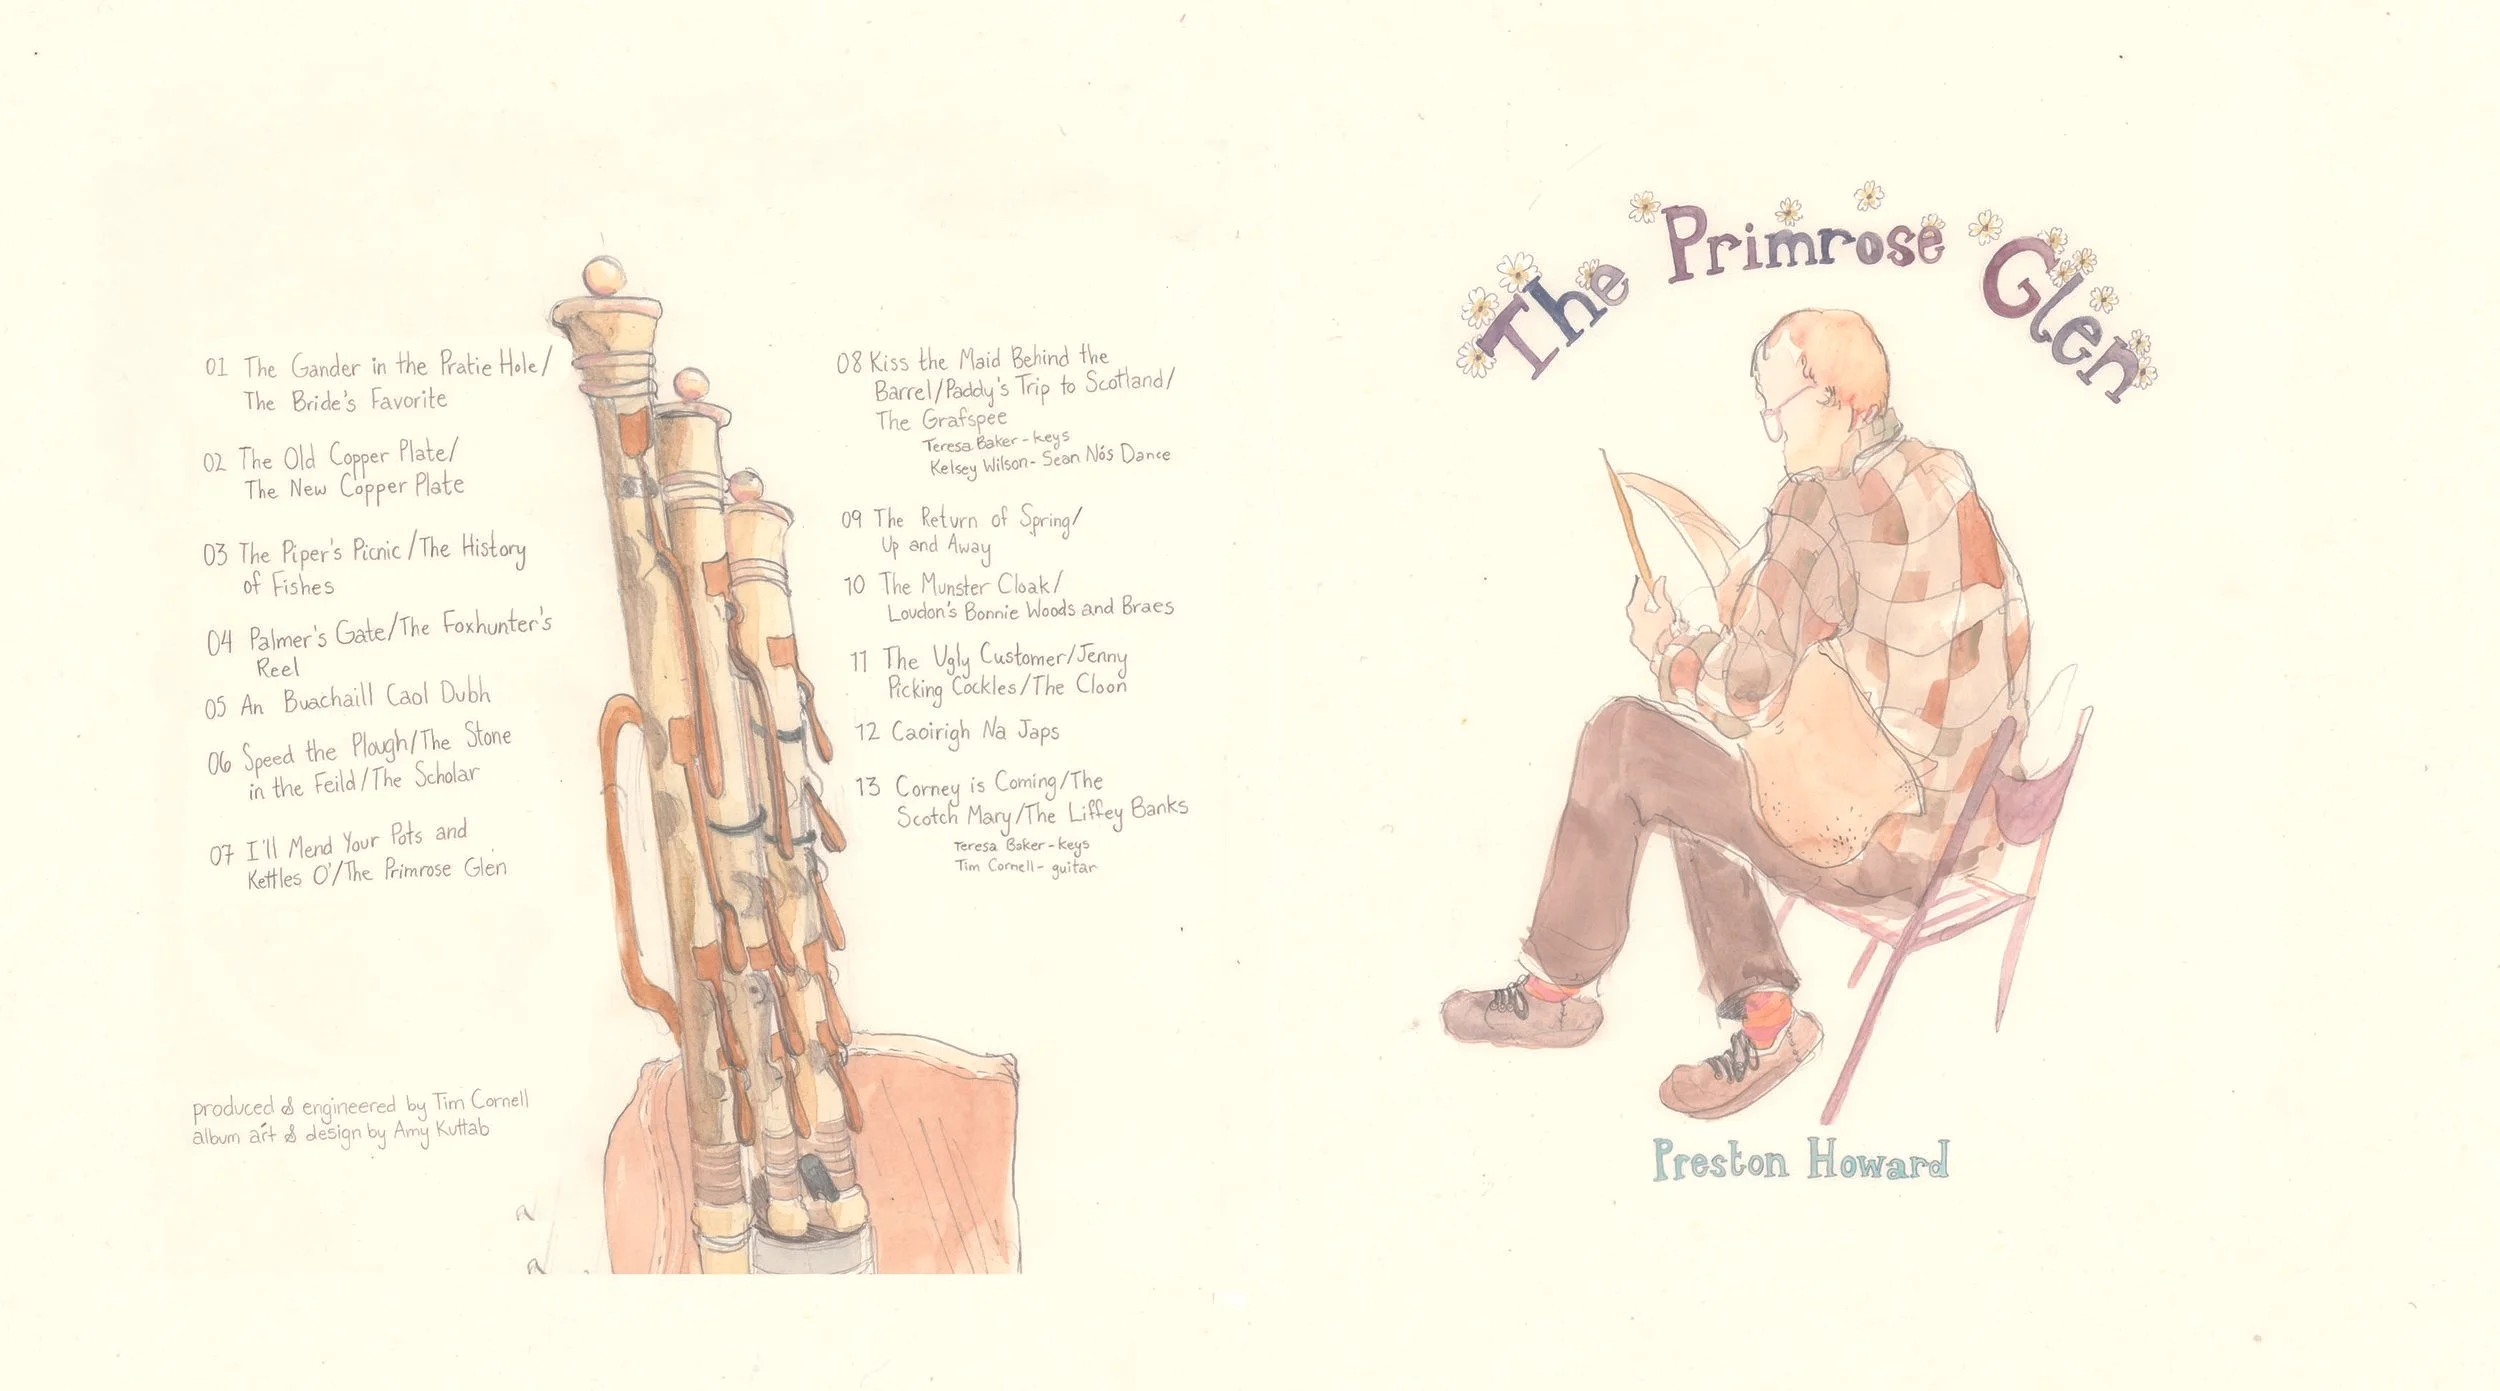 01 The Gander in the Pratie Hole/
The Bride's Favorite
02 The Old Copper Plate/
The New Copper Plate
03 The Piper's Picnic/The History
of Fishes
04 Palmer's Gate/The Foxhunter's
Reel
05 An Buachaill Caol Dubh
06 Speed the Plough/The Stone
in the Feild/The Scholar
07 I'll Mend Your Pots and
Kettles O'/The Primrose Glen
produced & engineered by Tim Cornell
album art & design by Amy Kuttab
08 Kiss the Maid Behind the
Barrel/Paddy's Trip to Scotland/
The Grafspee
Teresa Baker - keys
Kelsey Wilson - Sean Nós Dance
09 The Return of Spring/
Up and Away
10 The Munster Cloak/
Loudon's Bonnie Woods and Braes
11 The Ugly Customer/Jenny
Picking Cockles/The Cloon
12 Caoirigh Na Japs
13 Corney is Coming/The
Scotch Mary/The Liffey Banks
Teresa Baker - keys
Tim Cornell - guitar
The Primrose Glen
Preston Howard